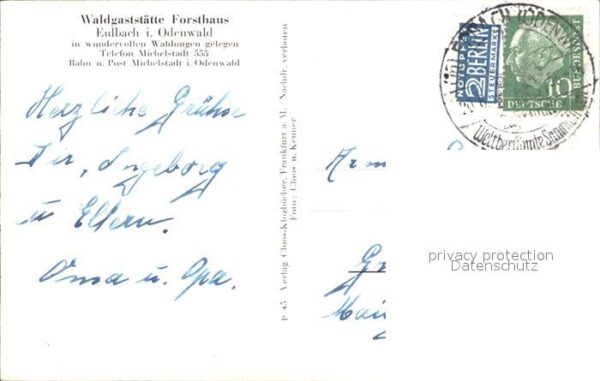 Waldgaststätte Forsthaus
Eulbach i. Odenwald
in wundervollen Waldungen gelegen
Telefon Michelstadt 555
Bahn u. Post Michelstadt i. Odenwald
Herzliche Grüße
Dir, Ingeborg
u. Eltern.
Oma u. Opa.
P 45 / Verlag Cloos-Klozbücher, Frankfurt a. M. Nachdr. verboten
Foto: Cloos u. Kenner
NOTOPFER
2 BERLIN
STEUERMARKE
10
DEUTSCHE
BUNDESPOST
ERBACH (ODENW)
Weltberühmte
privacy protection
Datenschutz